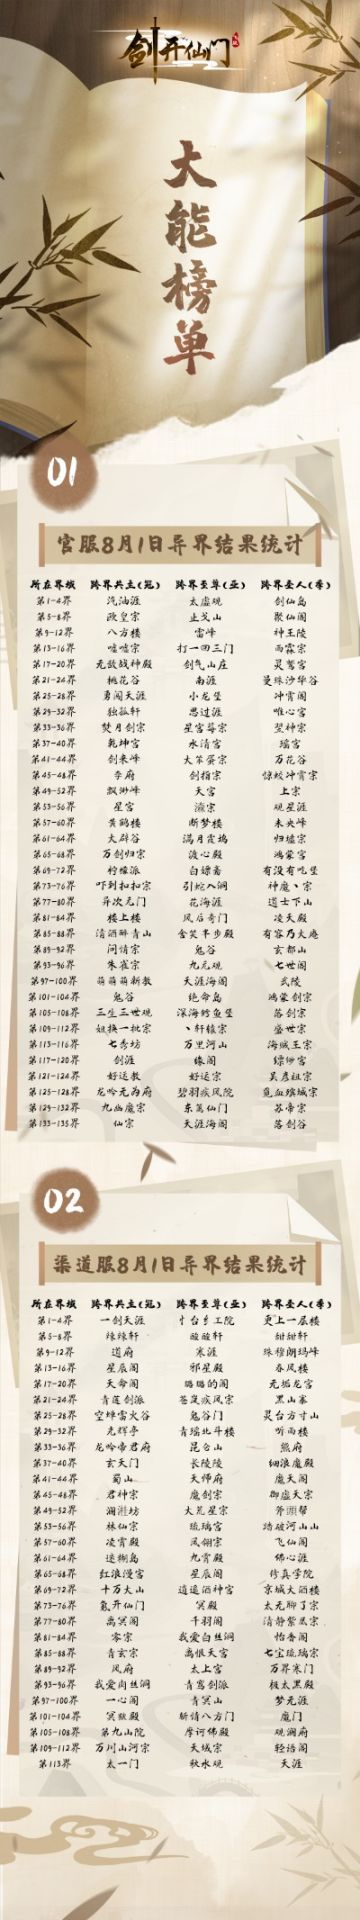 剑开仙门
大能榜单
01
官服8月1日异界结果统计
所在界域 跨界共主(冠) 跨界至尊(亚) 跨界圣人(季)
第1-4界 汽油涯 太虚观 剑仙岛
第5-8界 政皇宗 止戈山 聚仙阁
第9-12界 八方楼 雷峰 神王陵
第13-16界 嘘嘘宗 打一四三门 雨霖宗
第17-20界 无敌战神殿 剑气山庄 灵鹫宫
第21-24界 桃花谷 南涯 曼珠沙华谷
第25-28界 勇闯天涯 小龙堡 冲霄阁
第29-32界 独孤轩 思过涯 唯心宫
第33-36界 焚月剑宗 星宫莓宗
第37-40界 乾坤宫 水清宫 瑶宫
第41-44界 剑来峰 大笨蛋宗 万花谷
第45-48界 李府 剑指宗 惊蛟冲霄宗
第49-52界 飘渺峰 天宫 上宗
第53-56界 星宫 观星涯
第57-60界 黄鹤楼 断梦楼 未央峰
第61-64界 大辟谷 满月霞坞 归墟宗
第65-68界 万剑归宗 渡心殿 鸿蒙宫
第69-72界 柠檬派 白嫖斋 有没有吃堡
第73-76界 吓到扣扣宗 引蛇八涧 神魔丶宗
第77-80界 异次元门 花海涯 道士下山
第81-84界 楼上楼 风后奇门 凌天殿
第85-88界 清酒醉青山 含笑半步殿 有容乃大庵
第89-92界 问情宗 鬼谷 玄都山
第93-96界 朱雀宗 九元观 七世阁
第97-100界 萌萌萌新教 天涯海阁 武陵
第101-104界 鬼谷 绝命岛 鸿蒙剑宗
第105-108界 三生三世观 深海鳕鱼堡 落剑宗
第109-112界 姐换一批宗 丶轩辕宗 盛世宗
第113-116界 七秀坊 万里河山 海贼王宗
第117-120界 剑涯 缘阁 缥缈宫
第121-124界 好运教 好运宗 吴彦祖宗
第125-128界 龙吟无为府 碧羽疾风院 觅血缤城宗
第129-132界 九幽魔宗 东篱仙门 苏帝宗
第133-135界 仙宗 天涯海阁 落剑谷
02
渠道服8月1日异界结果统计
所在界域 跨界共主(冠) 跨界至尊(亚) 跨界圣人(季)
第1-4界 一剑天涯 更上一层楼
第5-8界 辣辣轩 酸酸轩 甜甜轩
第9-12界 道府 寒涯 珠穆朗玛峰
第13-16界 星辰阁 邪星殿 春风楼
第17-20界 天命阁 璐璐的阁 无垢龙宫
第21-24界 青莲剑派 苍岚疾风宗 黑山寨
第25-28界 空蝉雷火谷 鬼谷门 灵台方寸山
第29-32界 光辉亭 青瑶北斗楼 听雨楼
第33-36界 龙吟帝君府 昆仑山 熊府
第37-40界 玄天门 长陵陵 细浪魔殿
第41-44界 蜀山 天师府 魔天阁
第45-48界 君神宗 魔剑宗 御虚天宗
第49-52界 澜湘坊 大荒星宗 斧頭帮
第53-56界 林仙宗 琉璃宫 踏破河山山
第57-60界 凌霄殿 凤翎宗 飞仙阁
第61-64界 迷糊岛 九霄殿 佛心涯
第65-68界 红浪漫宫 星辰阁 修真学院
第69-72界 十万大山 逍遥酒神宫 京城大酒楼
第73-76界 氪开仙门 冥殿 太无聊了宗
第77-80界 离冥阁 千羽阁 清静紫凰宗
第81-84界 零宗 我爱白丝洞 怡香阁
第85-88界 青玄宗 离恨天宫 七宝琉璃宗
第89-92界 风府 太上宫 万界寒门
第93-96界 我爱肉丝洞 青鸾剑派 极太黑殿
第97-100界 一心阁 青冥山 梦无涯
第101-104界 冥狱殿 斩情八方门 魔门
第105-108界 第九山院 摩诃佛殿 观澜府
第109-112界 万川山河宗 天域宗 轻语阁
第113界 太一门 秋水观 天涯